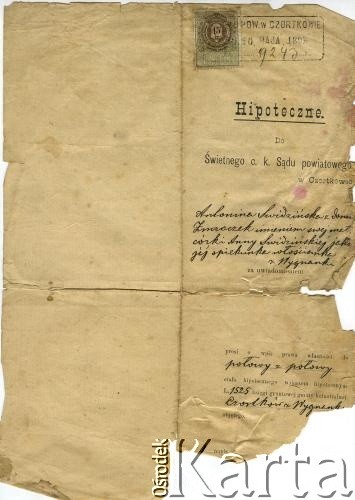 POW. w CZORTKOWIE
MAJA
924
15
Hipoteczne.
Do
Świetnego c. k. Sądu powiatowego
w Czortkowie
Antonina Świdzińska z domu
Zmraczek imieniem swej mał
córki Anny Świdzińskiej jako
jej opiekunka włościanka
z Wygnanki
za uwiadomieniem
prosi o wpis prawa własności do
połowy z połowy
ciała hipotecznego wykazem hipotecznym
l. 1525 księgi gruntowej gminy katastralnej
Czortków z Wygnank
objętego.
Ośrodek
Karta